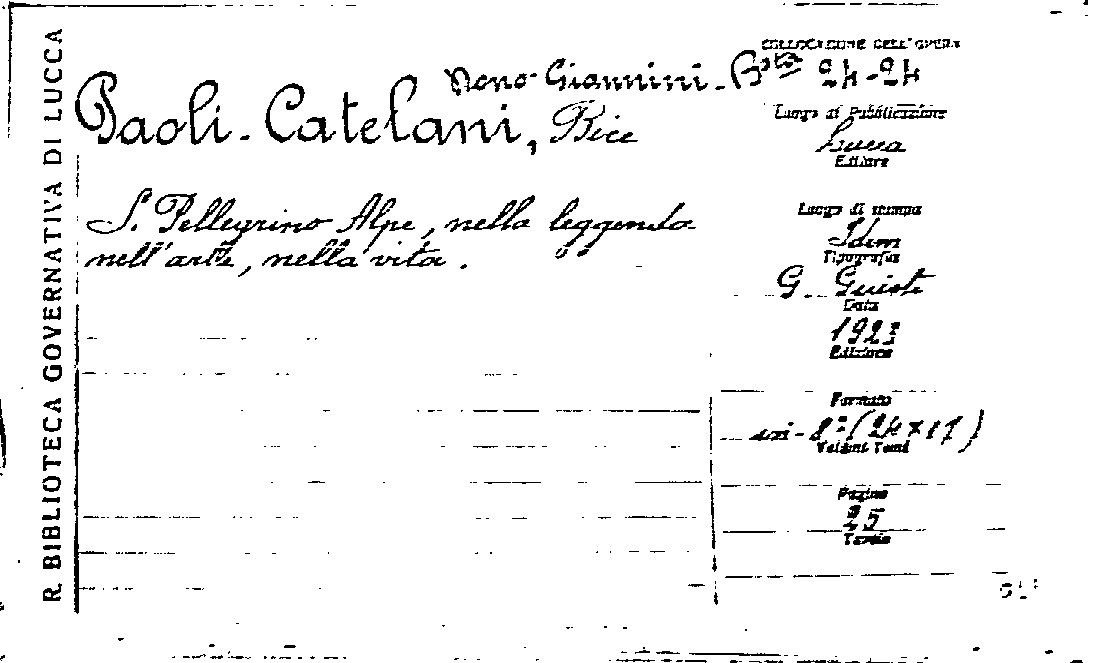 R. BIBLIOTECA GOVERNATIVA DI LUCCA
COLLOCAZIONE DELL'OPERA
Dono Giannini - Bsta 24-24
Paoli-Catelani, Bice
Luogo di Pubblicazione
Lucca
Editore
S. Pellegrino Alpe, nella leggenda
nell'arte, nella vita.
Luogo di stampa
Idem
Tipografia
G. Giusti
Data
1923
Edizione
Formato
in-8° (24x17)
Volumi Tomi
Pagine
25
Tavole